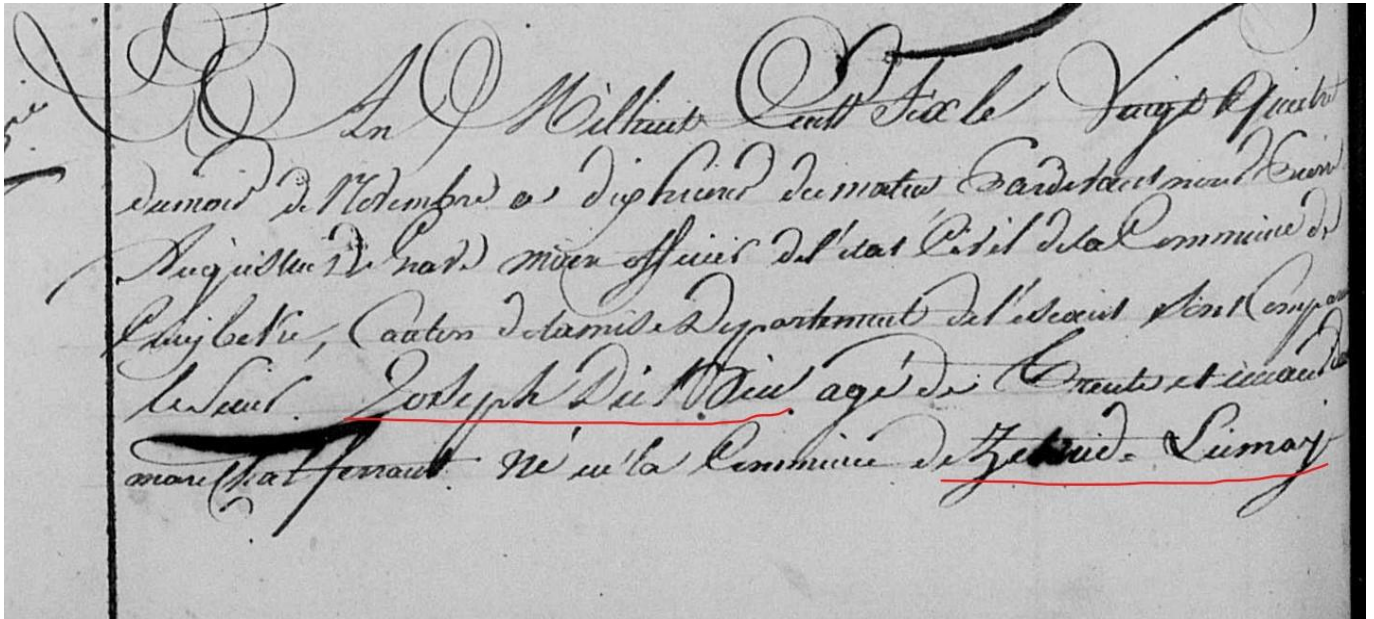 An Mil huit Cent Dix le Vingt quatre
du mois de Novembre a dix heures du matin Pardevant nous
maire officier de l'etat Civil de la Commune de
Cruybeke, Canton de tamise Departement de l'escaut Sont Compa
le Sieur Joseph agé de Trente et un ans
marechal ferrant Né en la Commune de Zetrud - Lumay